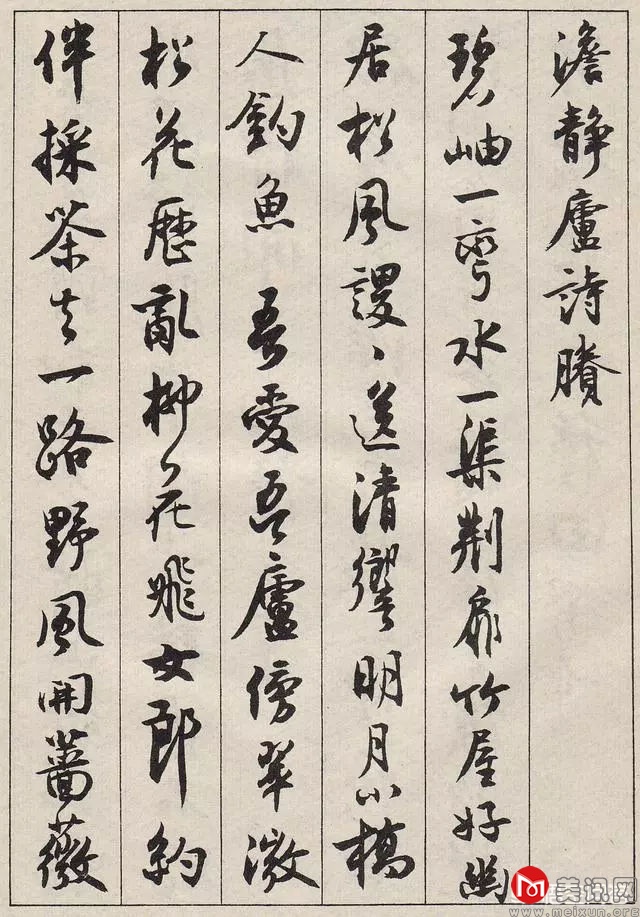 澹靜廬詩賸
碧岫一彎水一渠荆扉竹屋好幽
居松風謖〻送清響明月小橋
人釣魚 吾愛吾廬傍翠微
松花歷亂柳花飛女郎約
伴採茶去一路野風開薔薇
美讯网
www.meixun.org